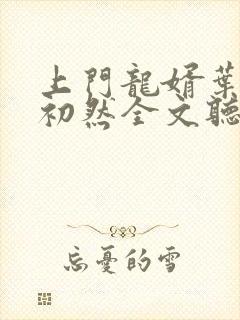 上門龍婿葉
初然全文聽
忘憂的雪